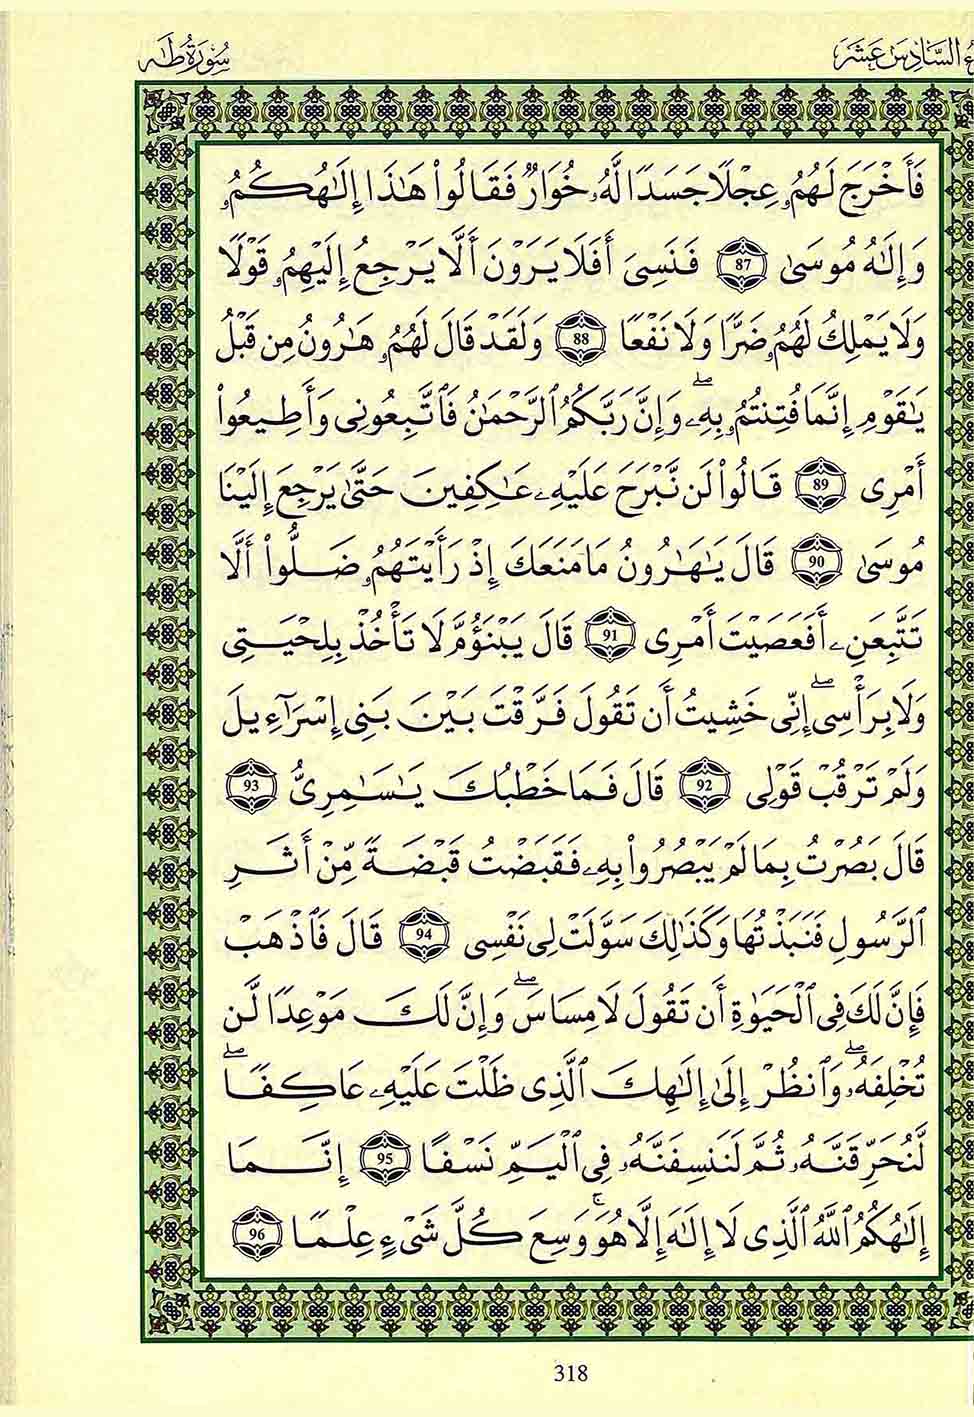 ءُ السَّادِسَ عَشَرَ
سُورَةُ طَهَ
فَأَخْرَجَ لَهُمُۥ عِجْلًا جَسَدًا لَّهُۥ خُوَارٌ فَقَالُوا۟ هَٰذَا إِلَٰهُكُمُۥ
وَإِلَٰهُ مُوسَىٰ 87 فَنَسِىَ أَفَلَا يَرَوْنَ أَلَّا يَرْجِعُ إِلَيْهِمُۥ قَوْلًا
وَلَا يَمْلِكُ لَهُمُۥ ضَرًّا وَلَا نَفْعًا 88 وَلَقَدْ قَالَ لَهُمُۥ هَٰرُونُ مِن قَبْلُ
يَٰقَوْمِ إِنَّمَا فُتِنتُمُۥ بِهِۦۖ وَإِنَّ رَبَّكُمُ ٱلرَّحْمَٰنُ فَٱتَّبِعُونِى وَأَطِيعُوٓا۟
أَمْرِى 89 قَالُوا۟ لَن نَّبْرَحَ عَلَيْهِۦ عَٰكِفِينَ حَتَّىٰ يَرْجِعَ إِلَيْنَا
مُوسَىٰ 90 قَالَ يَٰهَٰرُونُ مَا مَنَعَكَ إِذْ رَأَيْتَهُمُۥ ضَلُّوا۟ أَلَّا
تَتَّبِعَنِۦ أَفَعَصَيْتَ أَمْرِى 91 قَالَ يَبْنَؤُمَّ لَا تَأْخُذْ بِلِحْيَتِى
وَلَا بِرَأْسِىۖ إِنِّى خَشِيتُ أَن تَقُولَ فَرَّقْتَ بَيْنَ بَنِى إِسْرَآءِيلَ
وَلَمْ تَرْقُبْ قَوْلِى 92 قَالَ فَمَا خَطْبُكَ يَٰسَٰمِرِىُّ 93
قَالَ بَصُرْتُ بِمَا لَمْ يَبْصُرُوا۟ بِهِۦ فَقَبَضْتُ قَبْضَةً مِّنْ أَثَرِ
ٱلرَّسُولِ فَنَبَذْتُهَا وَكَذَٰلِكَ سَوَّلَتْ لِى نَفْسِى 94 قَالَ فَٱذْهَبْ
فَإِنَّ لَكَ فِى ٱلْحَيَوٰةِ أَن تَقُولَ لَا مِسَاسَۖ وَإِنَّ لَكَ مَوْعِدًا لَّن
تُخْلِفَهُۥۖ وَٱنظُرْ إِلَىٰ إِلَٰهِكَ ٱلَّذِى ظَلْتَ عَلَيْهِۦ عَاكِفًاۖ
لَّنُحَرِّقَنَّهُۥ ثُمَّ لَنَنسِفَنَّهُۥ فِى ٱلْيَمِّ نَسْفًا 95 إِنَّمَا
إِلَٰهُكُمُ ٱللَّهُ ٱلَّذِى لَا إِلَٰهَ إِلَّا هُوَۚ وَسِعَ كُلَّ شَىْءٍ عِلْمًا 96
318